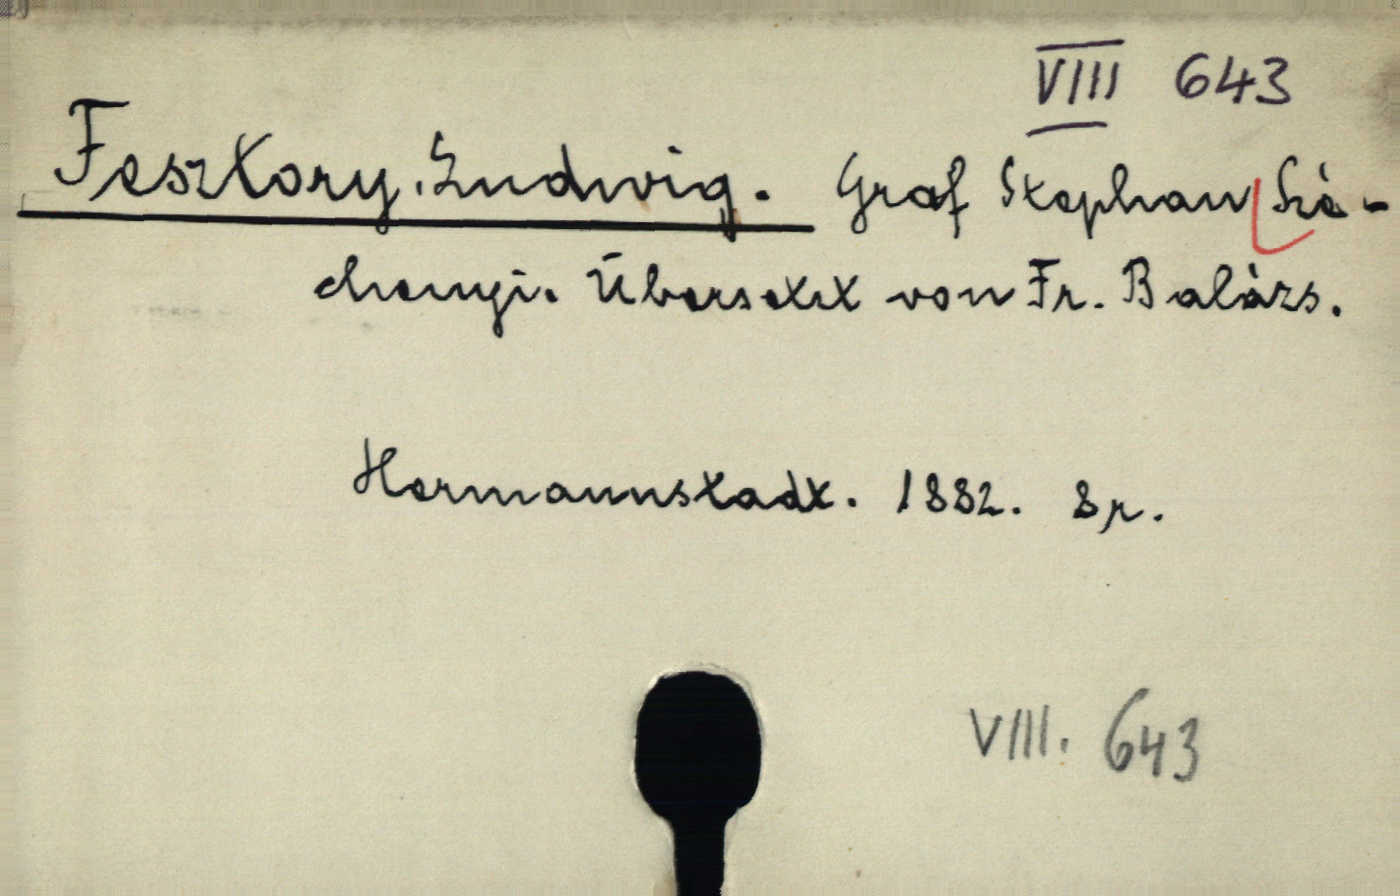 VIII 643
Fesztory, Ludwig. Graf Stephan Szé-
chenyi. Übersetzt von Fr. Balázs.
Hermannstadt. 1882. 8r.
VIII. 643